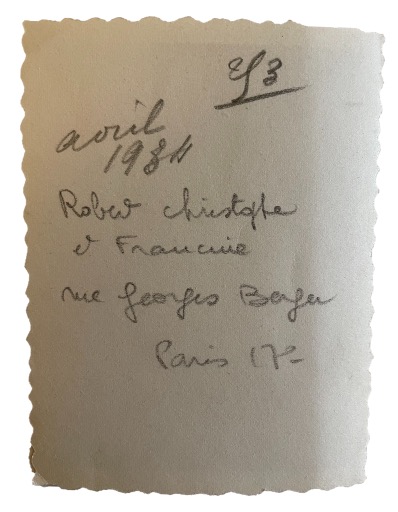 avril
1934
Robert christophe
et Francine
rue Georges Berger
Paris 17e